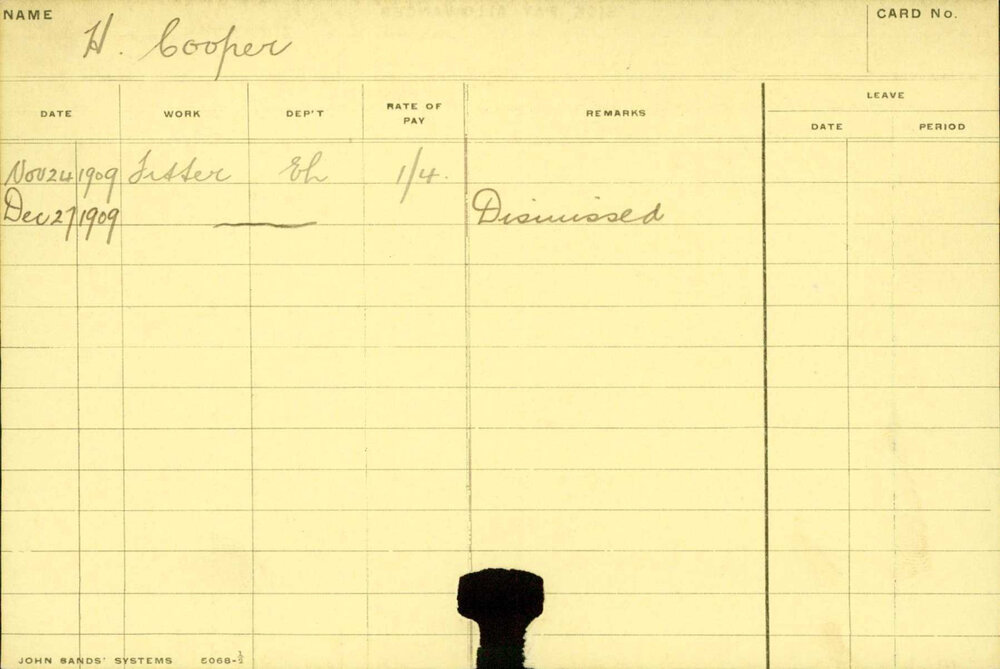 NAME
H. Cooper
CARD No.
DATE WORK DEP'T RATE OF PAY REMARKS LEAVE
DATE PERIOD
Nov 24 1909 Fitter Eh 1/4.
Dec 27 1909 Dismissed
JOHN SANDS' SYSTEMS 5068-½